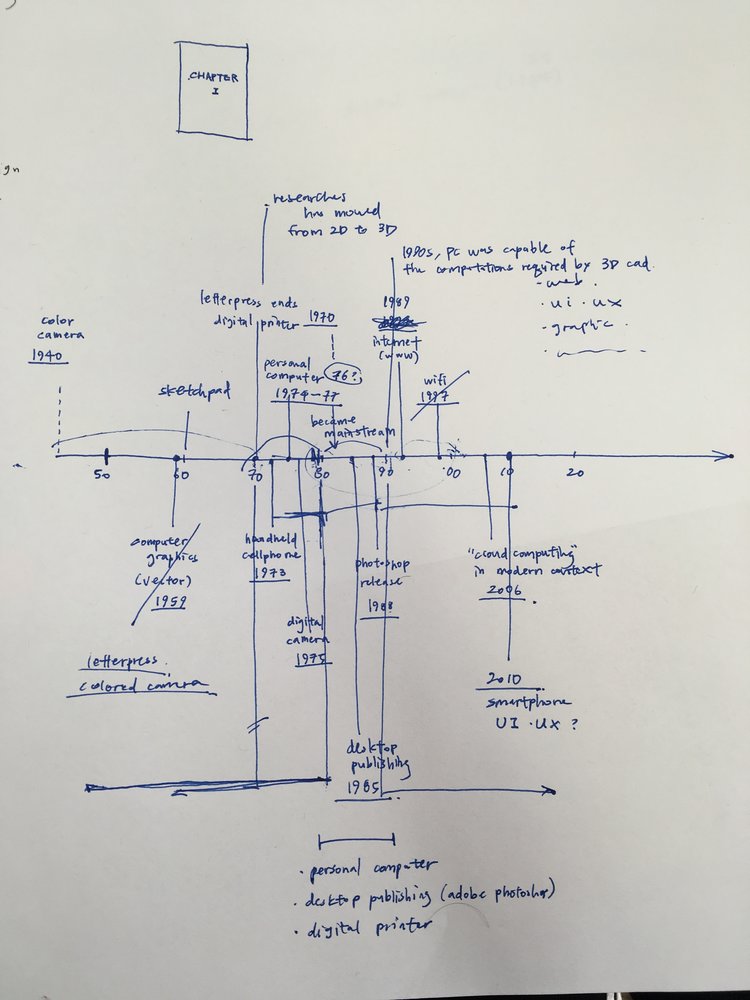 gn
CHAPTER
I
researches
has moved
from 2D to 3D
1990s, PC was capable of
the computations required by 3D cad.
- web.
· ui · ux
- graphic
color
camera
1940
letterpress ends
digital printer
1970
1989
internet
(www)
sketchpad
personal
computer
1974-77
76?
wifi
1997
became
mainstream
50
60
70
80
90
00
10
20
computer
graphics
(vector)
1959
handheld
cellphone
1973
digital
camera
1975
photoshop
release
1988
"cloud computing"
in modern context
2006
letterpress.
colored camera
2010
smartphone
UI · UX ?
desktop
publishing
1985
· personal computer
· desktop publishing (adobe photoshop)
· digital printer